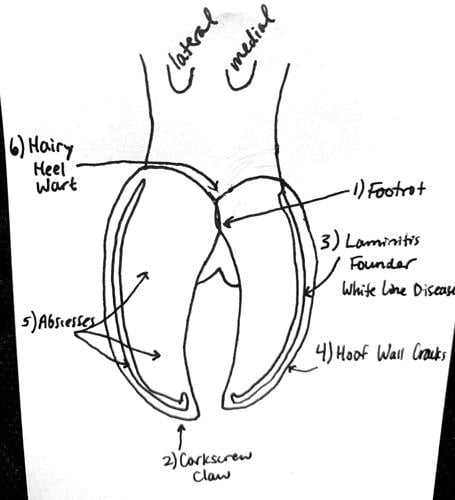 lateral
medial
6) Hairy
Heel
Wart
1) Footrot
3) Laminitis
Founder
White Line Disease
5) Abscesses
4) Hoof Wall Cracks
2) Corkscrew
Claw